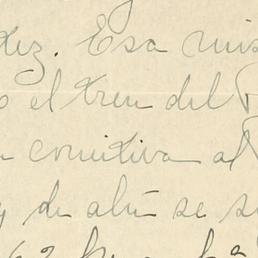 tez. Esa mis
o el tren del P
a comitiva al P
y de ahí se s